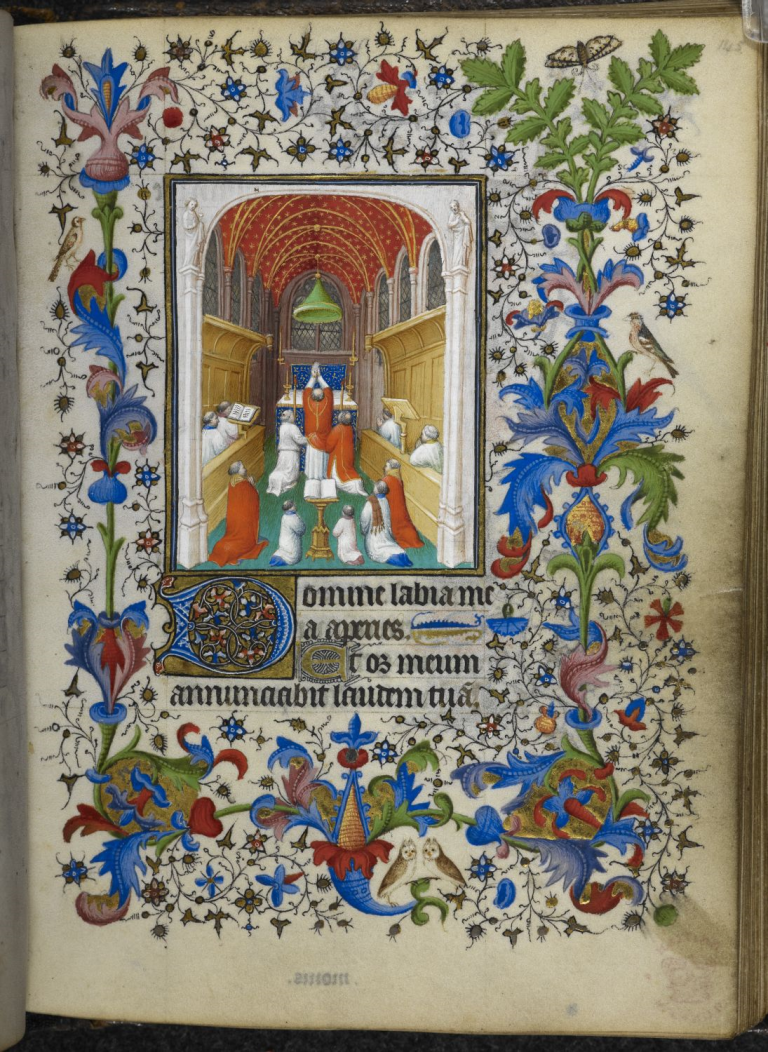 145
Domine labia me
a aperies.
Et os meum
annunciabit laudem tuã.